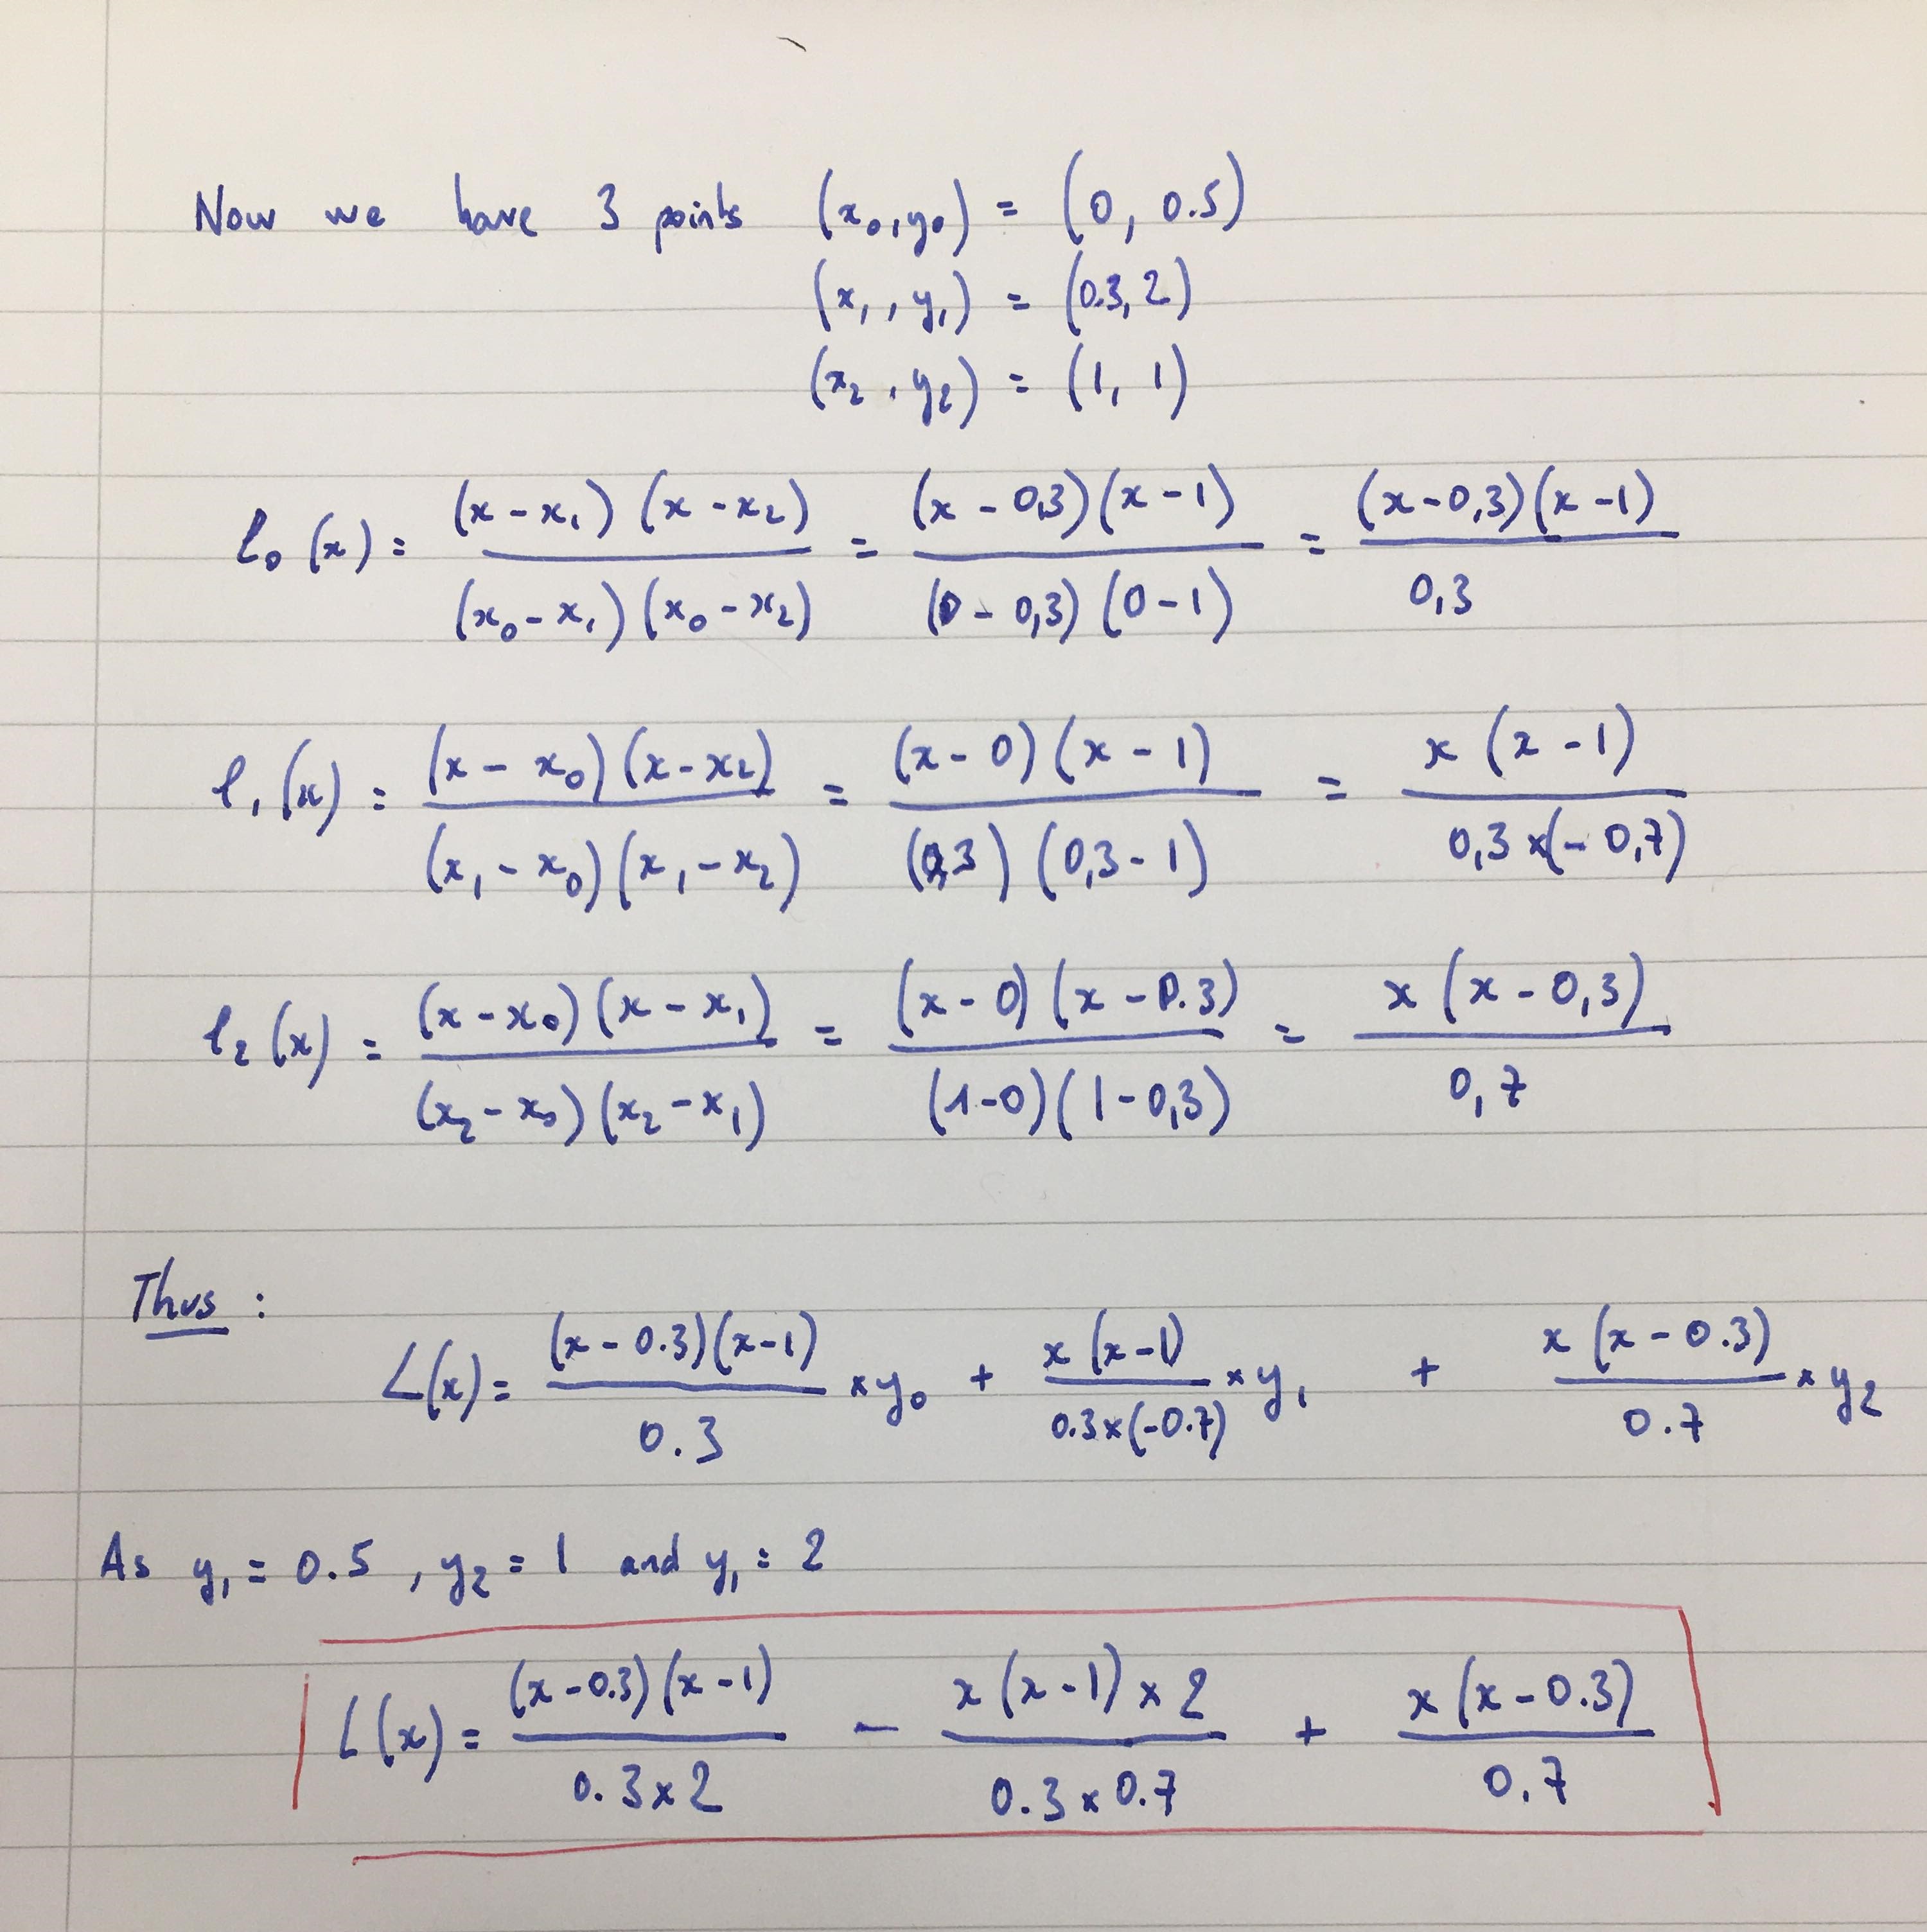 Now we have 3 points (x₀,y₀) = (0, 0.5)
(x₁, y₁) = (0.3, 2)
(x₂, y₂) = (1, 1)
l₀(x) = (x-x₁)(x-x₂) / (x₀-x₁)(x₀-x₂) = (x-0,3)(x-1) / (0-0,3)(0-1) = (x-0,3)(x-1) / 0,3
l₁(x) = (x-x₀)(x-x₂) / (x₁-x₀)(x₁-x₂) = (x-0)(x-1) / (0,3)(0,3-1) = x(x-1) / 0,3×(-0,7)
l₂(x) = (x-x₀)(x-x₁) / (x₂-x₀)(x₂-x₁) = (x-0)(x-0.3) / (1-0)(1-0,3) = x(x-0,3) / 0,7
Thus :
L(x) = (x-0.3)(x-1) / 0.3 × y₀ + x(x-1) / 0.3×(-0.7) × y₁ + x(x-0.3) / 0.7 × y₂
As y₁ = 0.5, y₂ = 1 and y₁ = 2
L(x) = (x-0.3)(x-1) / 0.3×2 - x(x-1)×2 / 0.3×0.7 + x(x-0.3) / 0.7